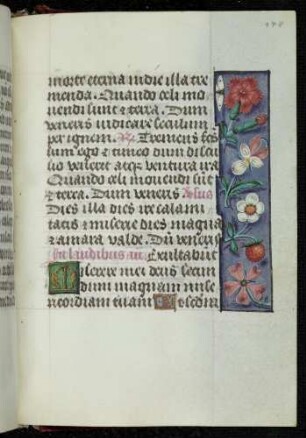 morte eterna in die illa tre
menda. Quando celi mo
uendi sunt & terra. Dum
veneris iudicare seculum
per ignem. Tremens fac
tus sum ego & timeo dum discus
sio venerit atq; ventura ira
Quando celi mouendi sūt
& terra. Dum veneris
Dies illa dies ire calami
tatis & miserie dies magna
& amara valde. Dū veneris
In laudibus an. Exultabūt
Miserere mei deus secun
dum magnam mise
ricordiam tuam Et secūm